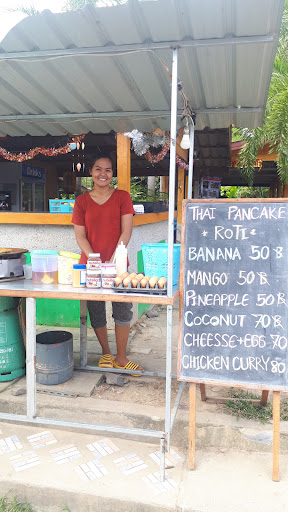 THAI PANCAKE
* ROTI *
BANANA 50 ฿
MANGO 50 ฿
PINEAPPLE 50 ฿
COCONUT 70 ฿
CHEESSE+EGG 70 ฿
CHICKEN CURRY 80